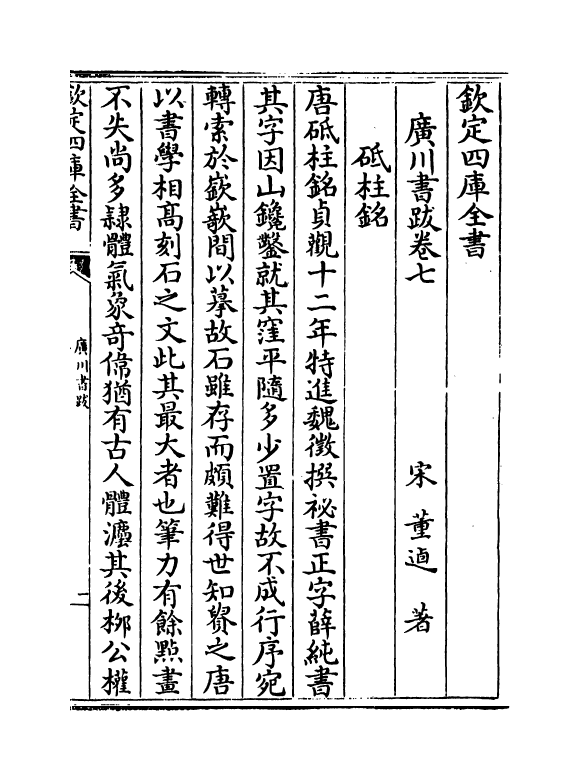 欽定四庫全書
廣川書跋卷七
宋 董逌 著
砥柱銘
唐砥柱銘貞觀十二年特進魏徵撰祕書正字薛純書
其字因山鑱鑿就其窪平隨多少置字故不成行序宛
轉索於嶔𡾋間以摹故石雖存而頗難得世知賢之唐
以書學相髙刻石之文此其最大者也筆力有餘㸃畫
不失尚多隸體氣象奇偉猶有古人體灋其後栁公權
欽定四庫全書
廣川書跋
二